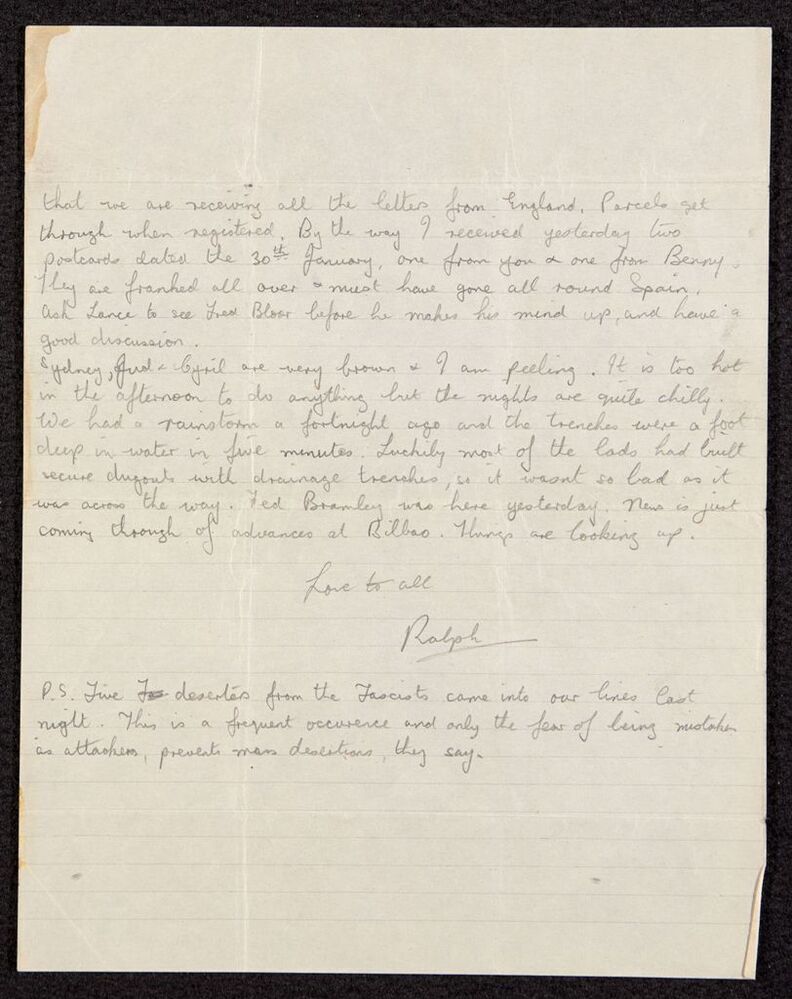 that we are receiving all the letters from England. Parcels get
through when registered. By the way I received yesterday two
postcards dated the 30th January, one from you & one from Benny.
They are franked all over & must have gone all round Spain.
Ask Lance to see Fred Bloor before he makes his mind up, and have a
good discussion.
Sydney, Jud & Cyril are very brown & I am peeling. It is too hot
in the afternoon to do anything but the nights are quite chilly.
We had a rainstorm a fortnight ago and the trenches were a foot
deep in water in five minutes. Luckily most of the lads had built
secure dugouts with drainage trenches, so it wasnt so bad as it
was across the way. Ted Bramley was here yesterday. News is just
coming through of advances at Bilbao. Things are looking up.
Love to all
Ralph
P.S. Five deserters from the Fascists came into our lines last
night. This is a frequent occurence and only the fear of being mistaken
as attackers, prevents mass desertions, they say.